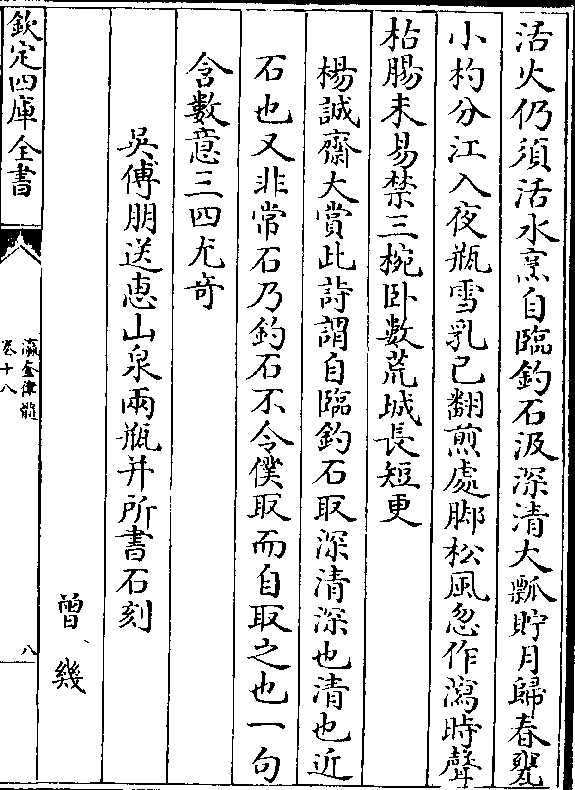 活火仍須活水烹自臨釣石汲深清大瓢貯月歸春甕
小杓分江入夜瓶雪乳已翻煎處脚松風忽作瀉時聲
枯腸未易禁三椀卧數荒城長短更
楊誠齋大賞此詩謂自臨釣石取深清深也清也近
石也又非常石乃釣石不令僕取而自取之也一句
含數意三四尤奇
吳傅朋送惠山泉兩瓶并所書石刻
曾幾
欽定四庫全書
瀛奎律髓
卷十八
八